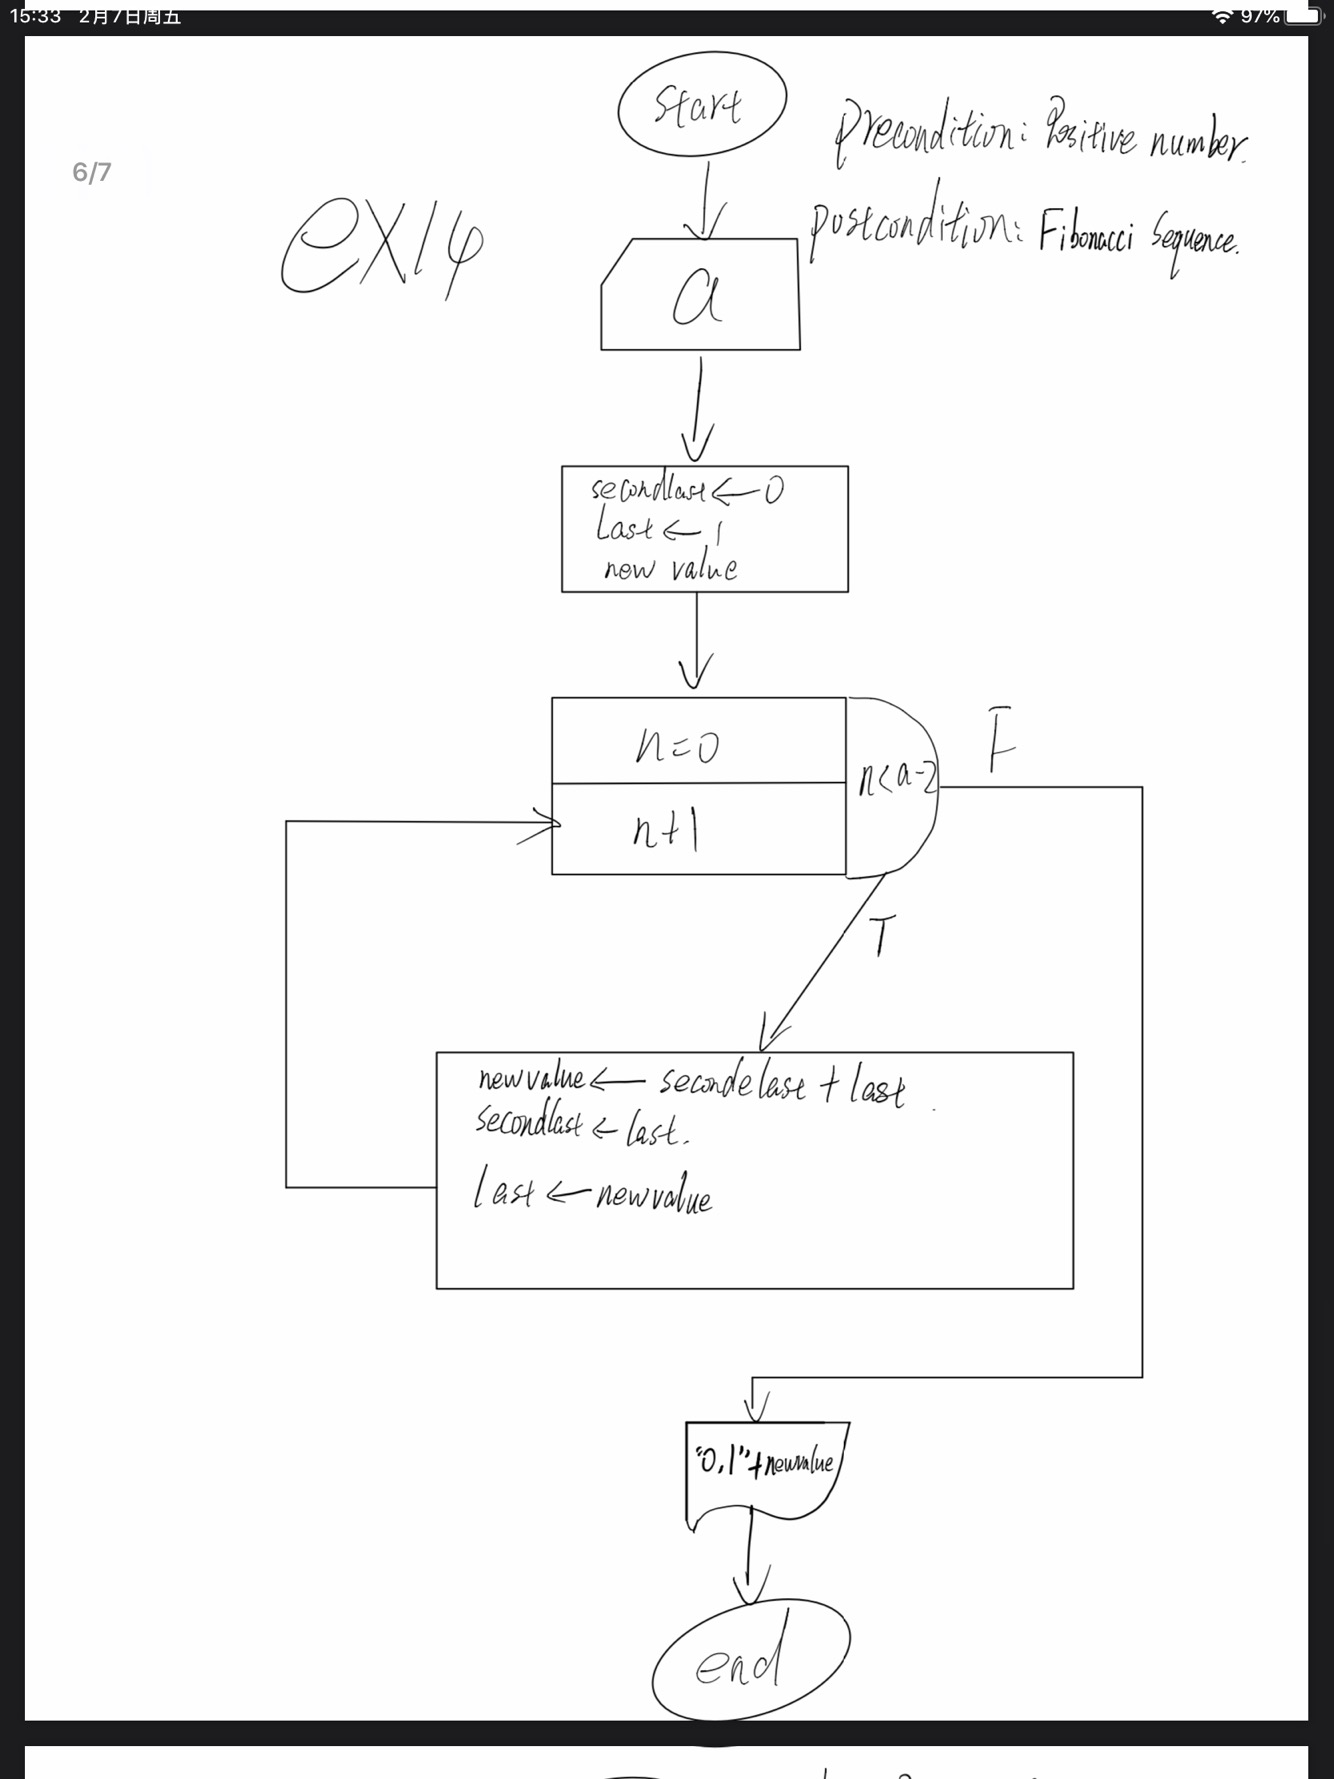 15:33 2月7日周五
97%
start
Precondition: Positive number.
6/7
ex14
postcondition: Fibonacci Sequence.
a
secondlast ← 0
Last ← 1
new value
n=0
n<a-2
F
n+1
T
newvalue ← secondelast + last
secondlast ← last.
last ← newvalue
"0,1"+newvalue
end